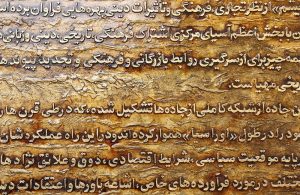 از نظر تجاری، فرهنگی و تأثیرات دینی بهره‌هایی فراوان
با بخش اعظم آسیای مرکزی اشتراک فرهنگی تاریخی، دینی و زبانی
چیز برای از سرگیری روابط بازرگانی و فرهنگی و تجدید پیوندها
مهیاست.
جاده از شبکه کاملی از جاده‌ها تشکیل شده، که در طی قرن‌ها
در طول راه را و هموار کرده بود در این راه عملکرد
پایه موقعیت سیاسی، شرایط اقتصادی، ذوق و علائق نژادها
در مورد فرآورده‌های خاص، اشاعه باورها و اعتقادات